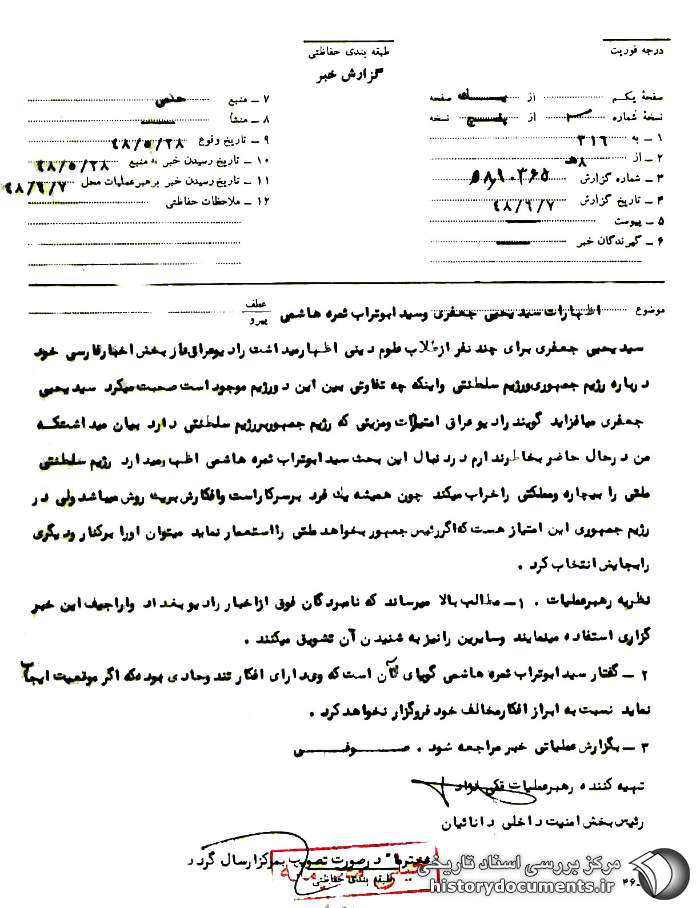 درجه فوریت
طبقه بندی حفاظتی
گزارش خبر
صفحهٔ یکم از یک صفحه
نسخهٔ شماره از پنج نسخه
۱ ـ به ۳۱۶
۲ ـ از ۸ﻫ
۳ ـ شماره گزارش
۴ ـ تاریخ گزارش ۴۸/۶/۷
۵ ـ پیوست
۶ ـ گیرندگان خبر
۷ ـ منبع
۸ ـ منشأ
۹ ـ تاریخ وقوع ۴۸/۵/۲۸
۱۰ ـ تاریخ رسیدن خبر به منبع ۴۸/۵/۲۸
۱۱ ـ تاریخ رسیدن خبر برهبر عملیات محل ۴۸/۶/۷
۱۲ ـ ملاحظات حفاظتی
موضوع اظهارات سید یحیی جعفری وسید ابوتراب ثمره هاشمی
عطف
پیرو
سید یحیی جعفری برای چند نفر از طلاب علوم دینی اظهار میداشت رادیو عراق از بخش اخبار فارسی خود
درباره رژیم جمهوری ورژیم سلطنتی واینکه چه تفاوتی بین این دو رژیم موجود است صحبت میکرد سید یحیی
جعفری میافزاید گوینده رادیو عراق امتیازات ومزیتی که رژیم جمهوری بر رژیم سلطنتی دارد بیان میداشت که
من درحال حاضر بخاطر ندارم دردنبال این بحث سید ابوتراب ثمره هاشمی اظهار میدارد رژیم سلطنتی
ملتی را بیچاره ومملکتی را خراب میکند چون همیشه یک فرد بر سر کار است وافکارش بریک روش میباشد ولی در
رژیم جمهوری این امتیاز هست که اگر رئیس جمهور بخواهد ملتی را استعمار نماید میتوان اورا برکنار ودیگری
را بجایش انتخاب کرد .
نظریه رهبر عملیات . ۱ـ مطالب بالا میرساند که نامبردگان فوق از اخبار رادیو بغداد واراجیف این خبر
گزاری استفاده مینمایند وسایرین را نیز به شنیدن آن تشویق میکنند .
۲ ـ گفتار سید ابوتراب ثمره هاشمی گویای آن است که وی دارای افکار تند وحادی بوده که اگر موقعیت ایجاب
نماید نسبت به ابراز افکار مخالف خود فروگزار نخواهد کرد .
۳ ـ بگزارش عملیاتی خبر مراجعه شود . صوفی
تهیه کننده رهبر عملیات
رئیس بخش امنیت داخلی دانائیان
محترما" درصورت تصویب بمرکز ارسال گردد
طبقه بندی حفاظتی
۴۶ـ
مرکز بررسی اسناد تاریخی
historydocuments.ir